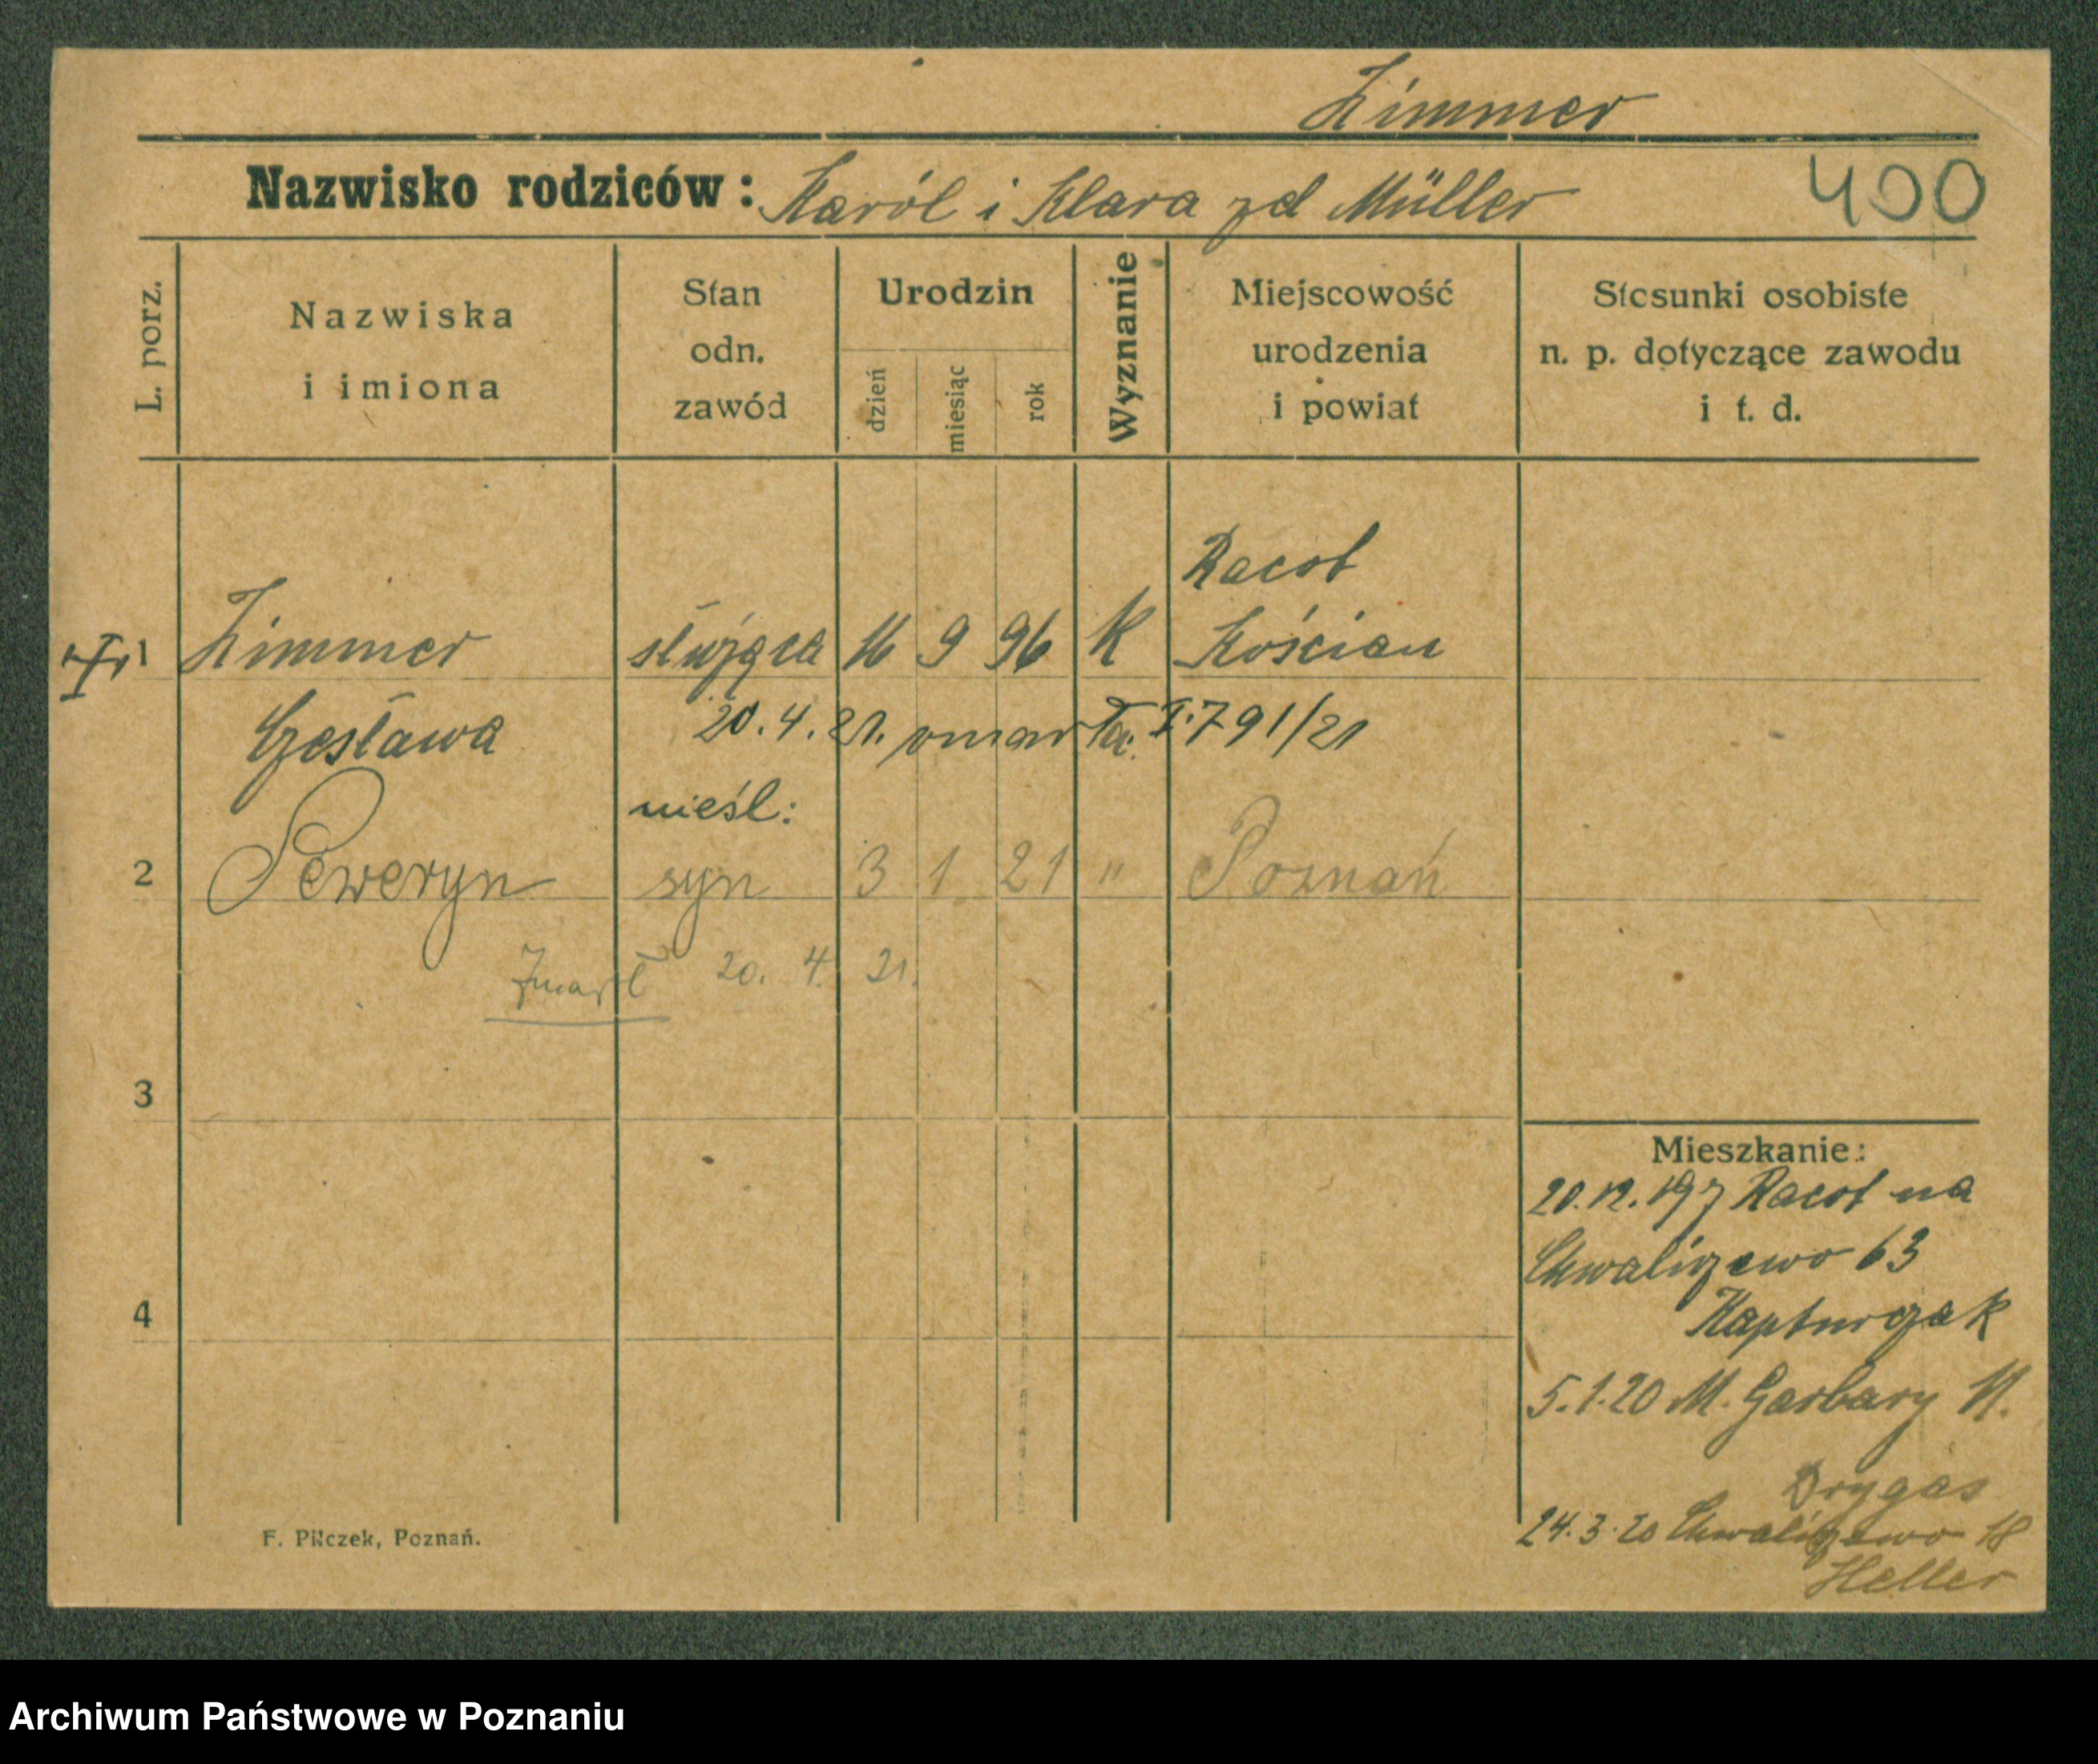 Zimmer
Nazwisko rodziców: Karól i Klara zd Müller
400
L. porz.
Nazwiska
i imiona
Stan
odn.
zawód
Urodzin
dzień
miesiąc
rok
Wyznanie
Miejscowość
urodzenia
i powiat
Stosunki osobiste
n. p. dotyczące zawodu
i t. d.
Racot
1 Zimmer służąca 16 9 96 K Kościan
Czesława 20.4.21. umarła: I.791/21
nieśl:
2 Seweryn syn 3 1 21 " Poznań
Zmarł 20. 4. 21.
3
4
Mieszkanie:
20.12.197 Racot na
Chwaliszewo 63
Kapturczak
5.1.20 M. Garbary 11.
Drygas
24.3.20 Chwaliszewo 18
Heller
F. Pilczek, Poznań.
Archiwum Państwowe w Poznaniu